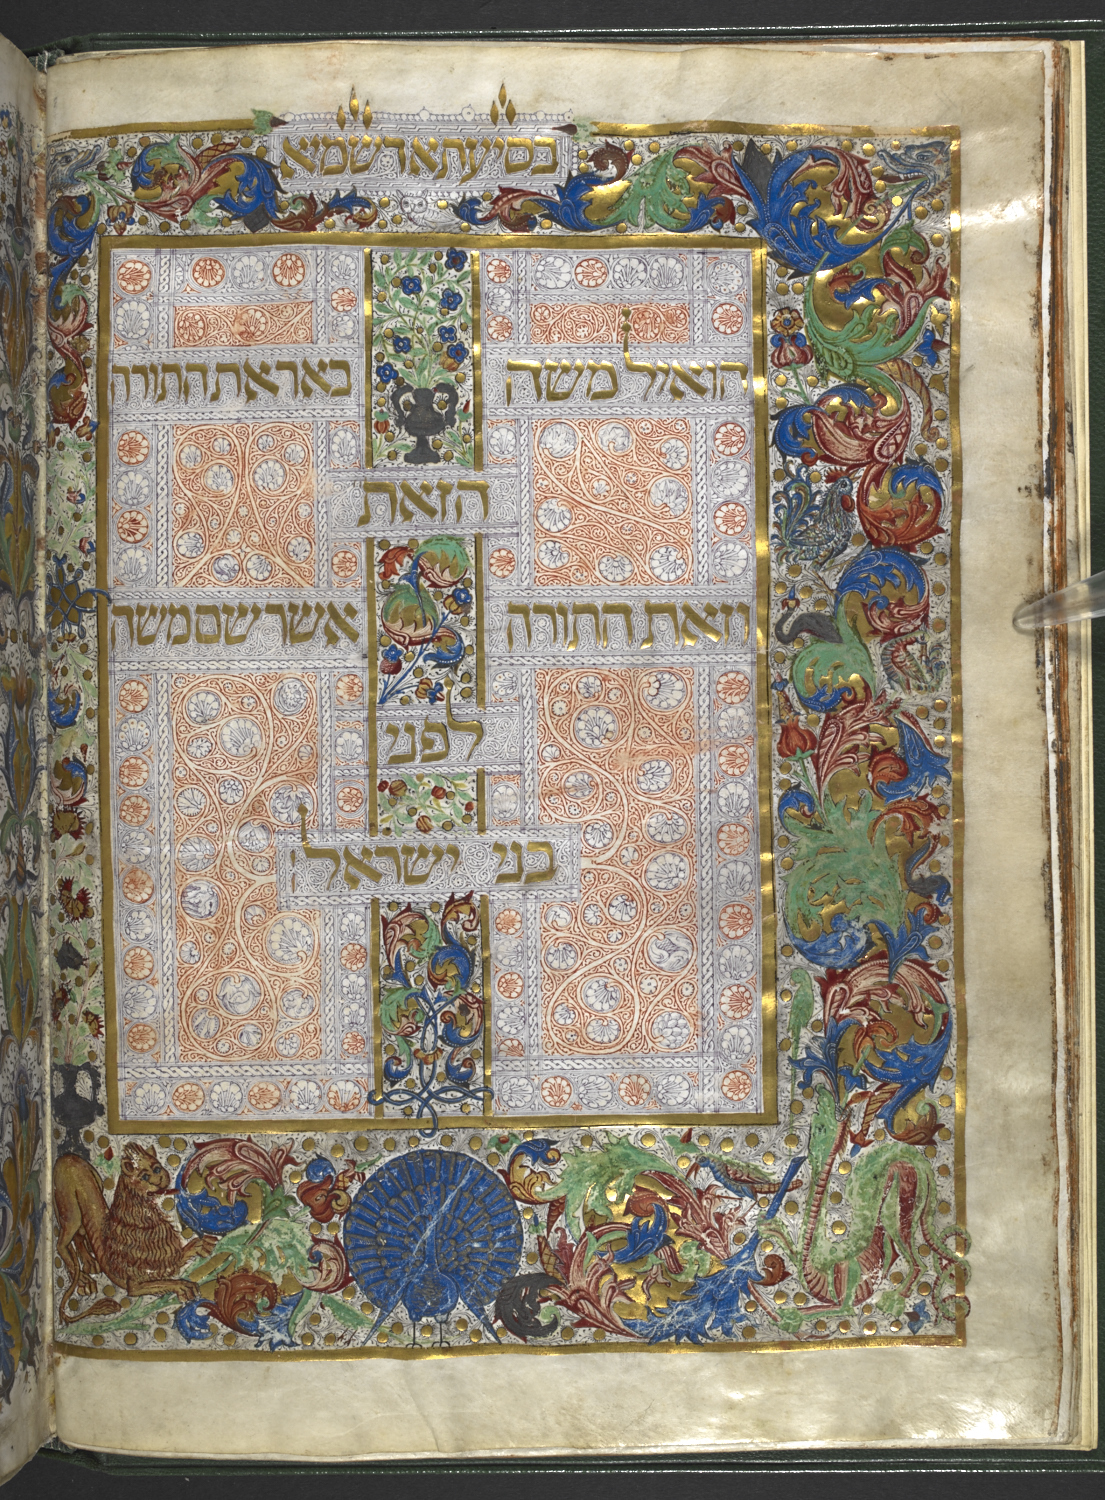 בסיעתא דשמיא
הואיל משה באר את התורה
הזאת
וזאת התורה אשר שם משה
לפני
בני ישראל